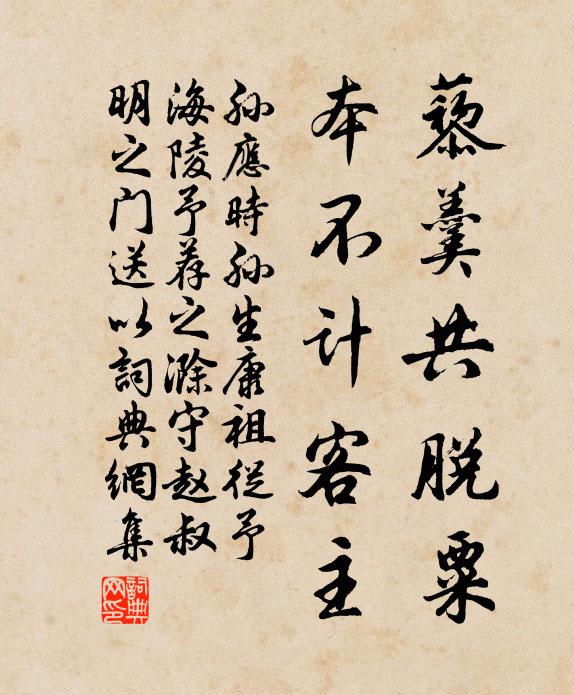 藜羹共脱粟
本不计客主
孙應時孙生康祖从予
海陵予荐之滁守赵叔
明之门送以詞典網集
詞典网印